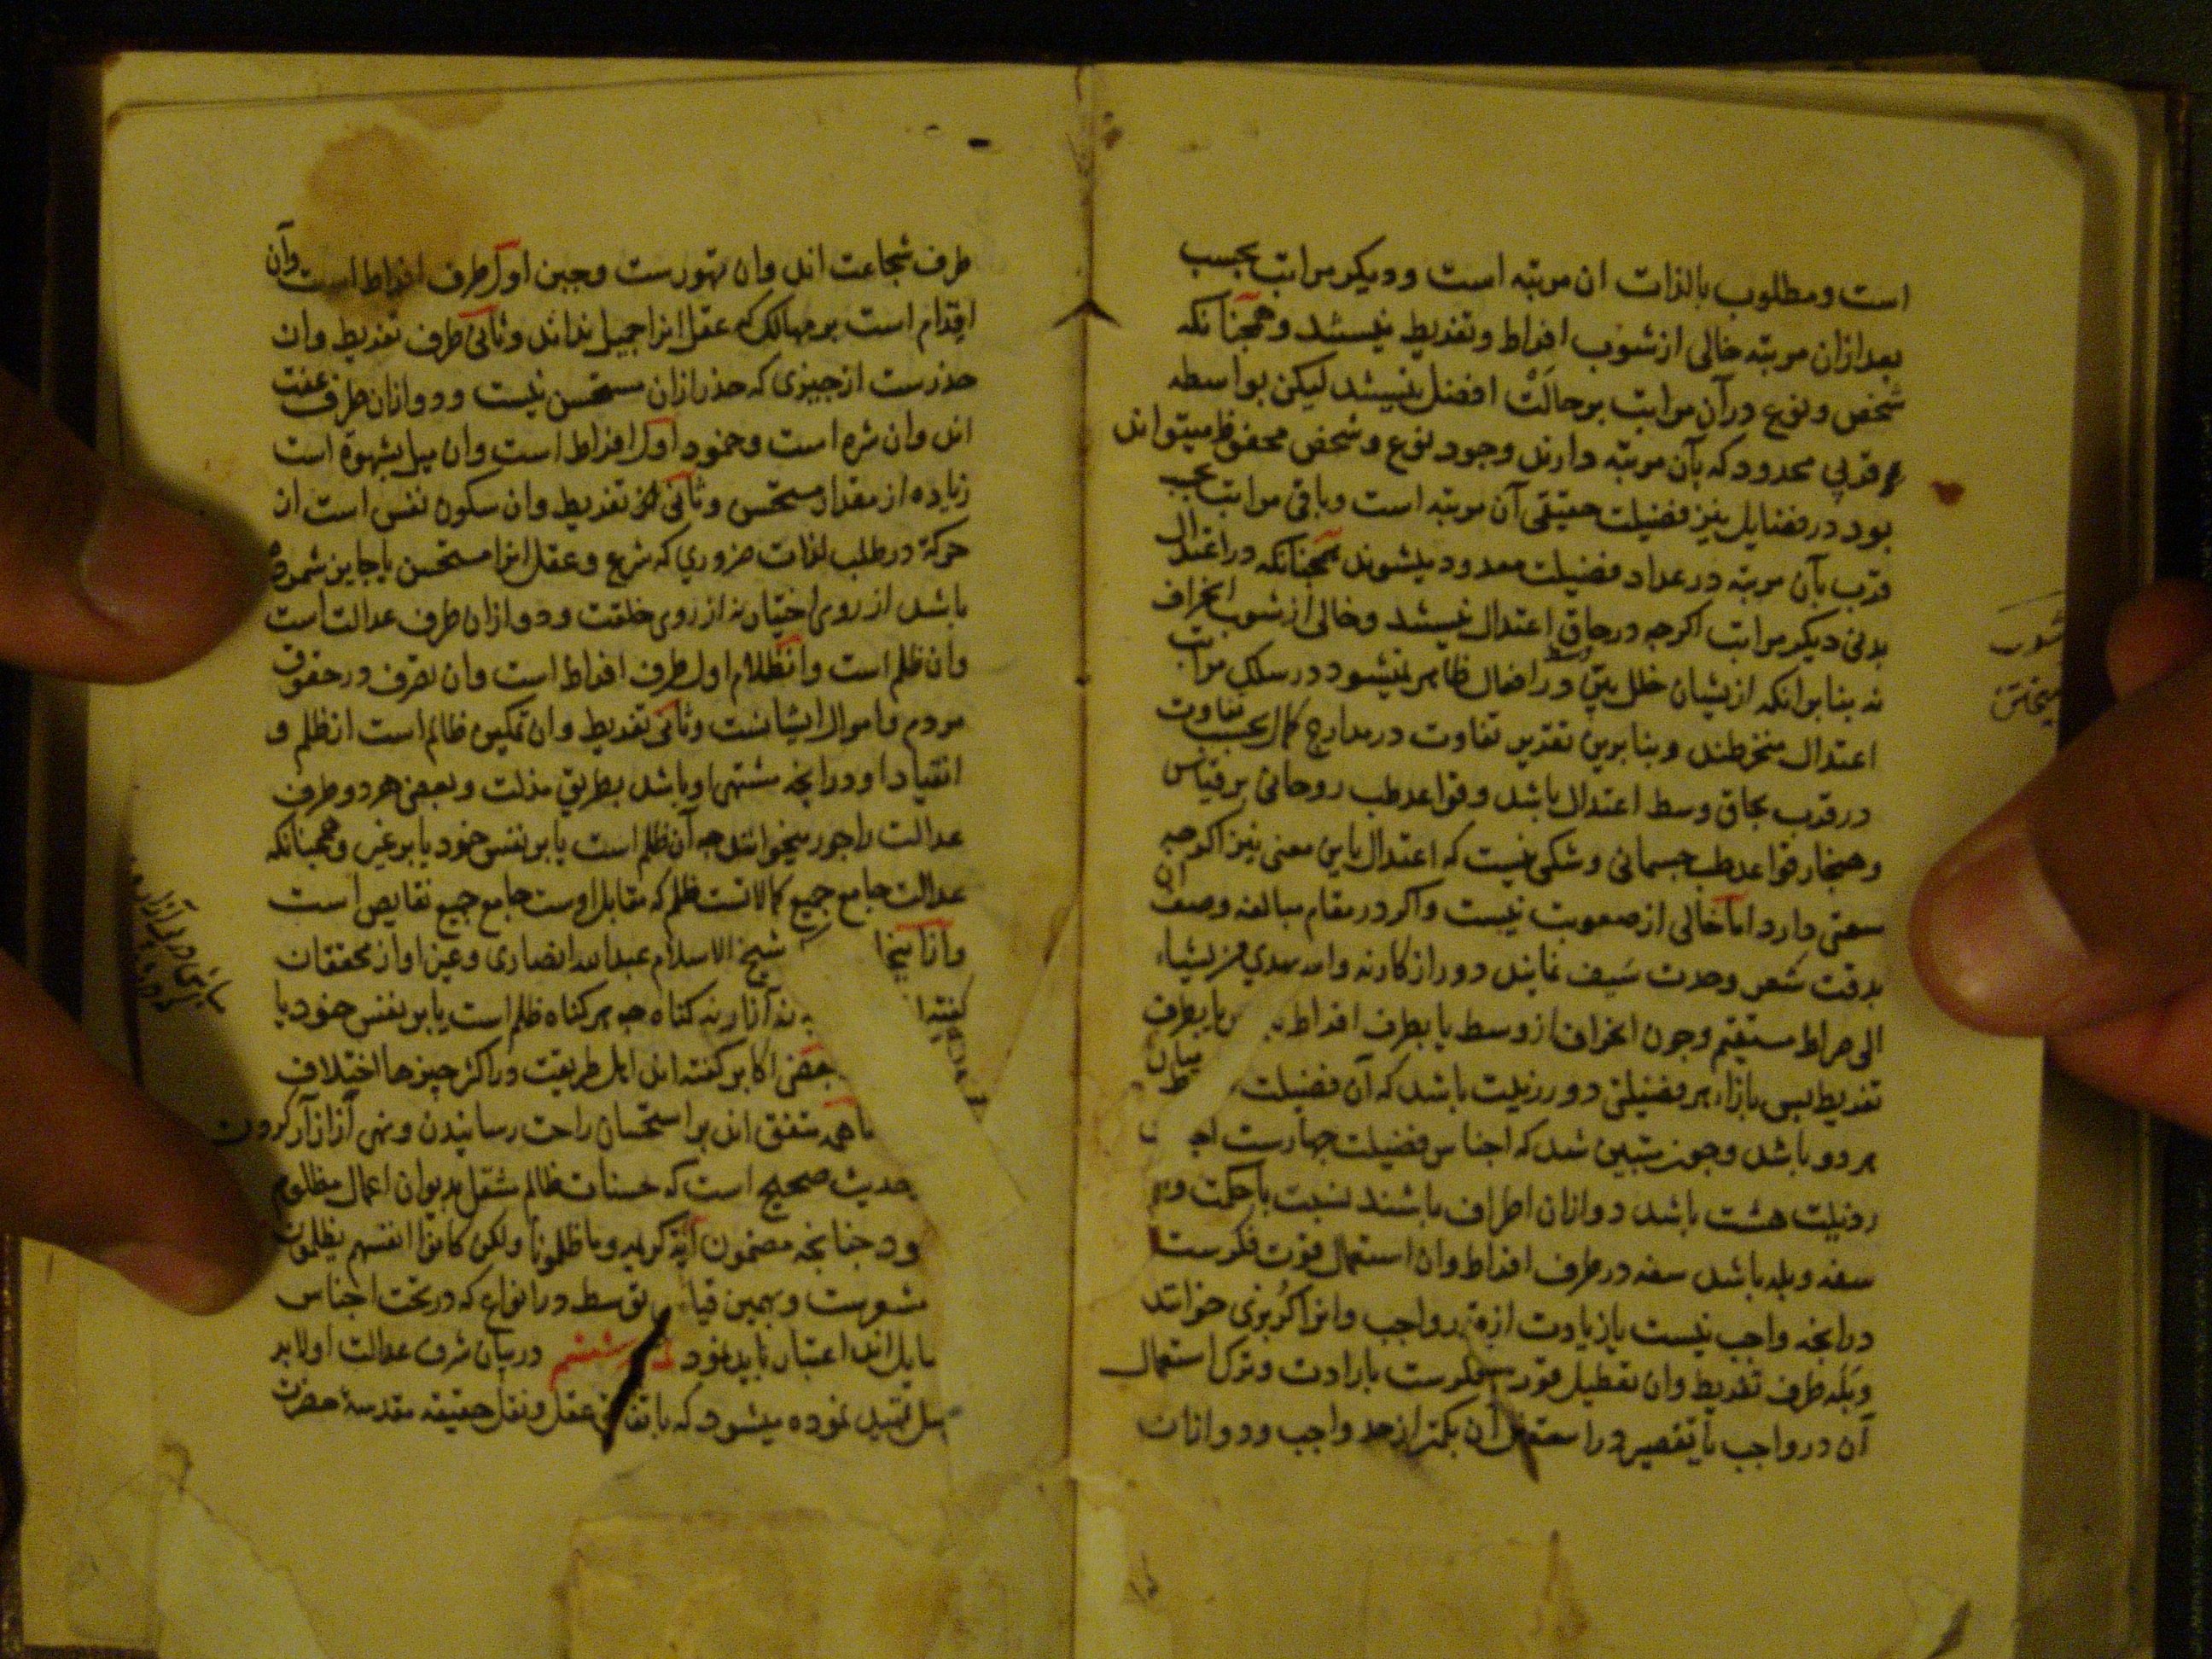 است و مطلوب بالذات ان مرتبه است و دیکر مراتب بحسب
بعد ازان مرتبه خالی از شوب افراط و تفریط نیستند و همجنانکه
شخص و نوع در آن مراتب بر حالت افضل نیستند لیکن بواسطه
قربی محدود که بآن مرتبه دارند وجود نوع و شخص محفوظ میتواند
بود در فضایل نیز فضیلت حقیقی آن مرتبه است و باقی مراتب بحسب
قرب بآن مرتبه در عداد فضیلت معدود میشوند همجنانکه در اعتدال
بدنی دیکر مراتب اکرجه در حاق اعتدال نیستند و خالی از شوب انحراف
نه بنا برانکه ازیشان خلل بیّن در افعال ظاهر نمیشود در سلک مراتب
اعتدال منخرطند و بنا برین تقدیر تفاوت در مدارج کمال بحسب تفاوت
در قرب بحاق وسط اعتدال باشد و قواعد طب روحانی بر قیاس
و هنجار قواعد طب جسمانی و شکی نیست که اعتدال باین معنی نیز اکرجه
سعتی دارد اما خالی از صعوبت نیست و اکر در مقام مبالغه وصف ان
بدقت شعر و حدت سیف نمایند دور از کار نه والله یهدی من یشاء
الی صراط مستقیم وجون انحراف از وسط یا بطرف افراط یا بطرف
تفریط بس بازاء هر فضیلتی دو رزیلت باشد که آن فضیلت میان
هر دو باشد وجون متبین شد که اجناس فضیلت جهارست
رذیلت هشت باشد دو ازان اطراف باشند نسبت با حکمت و
سفه و بله باشد سفه در طرف افراط وان استعمال قوت فکرست
درانجه واجب نیست یا زیادت از قدر واجب وانرا کُربزی خوانند
و بَله طرف تفریط وان تعطیل قوت فکرست بارادت و ترک استعمال
آن در واجب یا تقصیر در استعمال آن بکمتر از حد واجب و دو ازان
طرف شجاعت اند وان تهورست و جبن اول طرف افراط است وآن
اقدام است بر مهالک که عقل انرا جمیل نداند و ثانی طرف تفریط وان
حذرست از جیزی که حذر ازان مستحسن نیست و دو ازان طرف عفت
اند وان شره است و خمود اول افراط است وان میل بشهوة است
زیاده از مقدار مستحسن و ثانی تفریط وان سکون نفس است از
حرکة در طلب لذات ضروری که شرع و عقل انرا مستحسن یا جایز شمرده
باشد از روی اختیار نه از روی خلقت و دو ازان طرف عدالت است
وان ظلم است و انظلام اول طرف افراط است وان تصرف در حقوق
مردم و اموال ایشانست و ثانی تفریط وان تمکین ظالم است از ظلم و
انقیاد او درانجه مشتهی او باشد بطریق مذلت و بعضی هر دو طرف
عدالت را جور میخوانند جه آن ظلم است یا بر نفس خود یا بر غیر و همجنانکه
عدالت جامع جمیع کمالاتست ظلم که مقابل اوست جامع جمیع نقایص است
وازینجا شیخ الاسلام عبدالله انصاری و غیر او از محققان
کفته نه آزار نه کناه جه هر کناه ظلم است یا بر نفس خود یا
بعضی اکابر کفته اند اهل طریقت در اکثر جیزها اختلاف
همه متفق اند بر استحسان راحت رسانیدن و نهی آزار کردن
حدیث صحیح است که حسنات ظالم منتقل بدیوان اعمال مظلوم
ود جنانجه مضمون آیة کریمه وما ظلمونا ولکن کانوا انفسهم یظلمون
مشعرست و بهمین قیاس توسط در انواع که در تحت اجناس
اند اعتبار باید نمود در بیان شرف عدالت اولا بر
سبیل تمهید نموده میشود که باتفاق عقل و نقل حقیقه مقدسهٔ حضرت